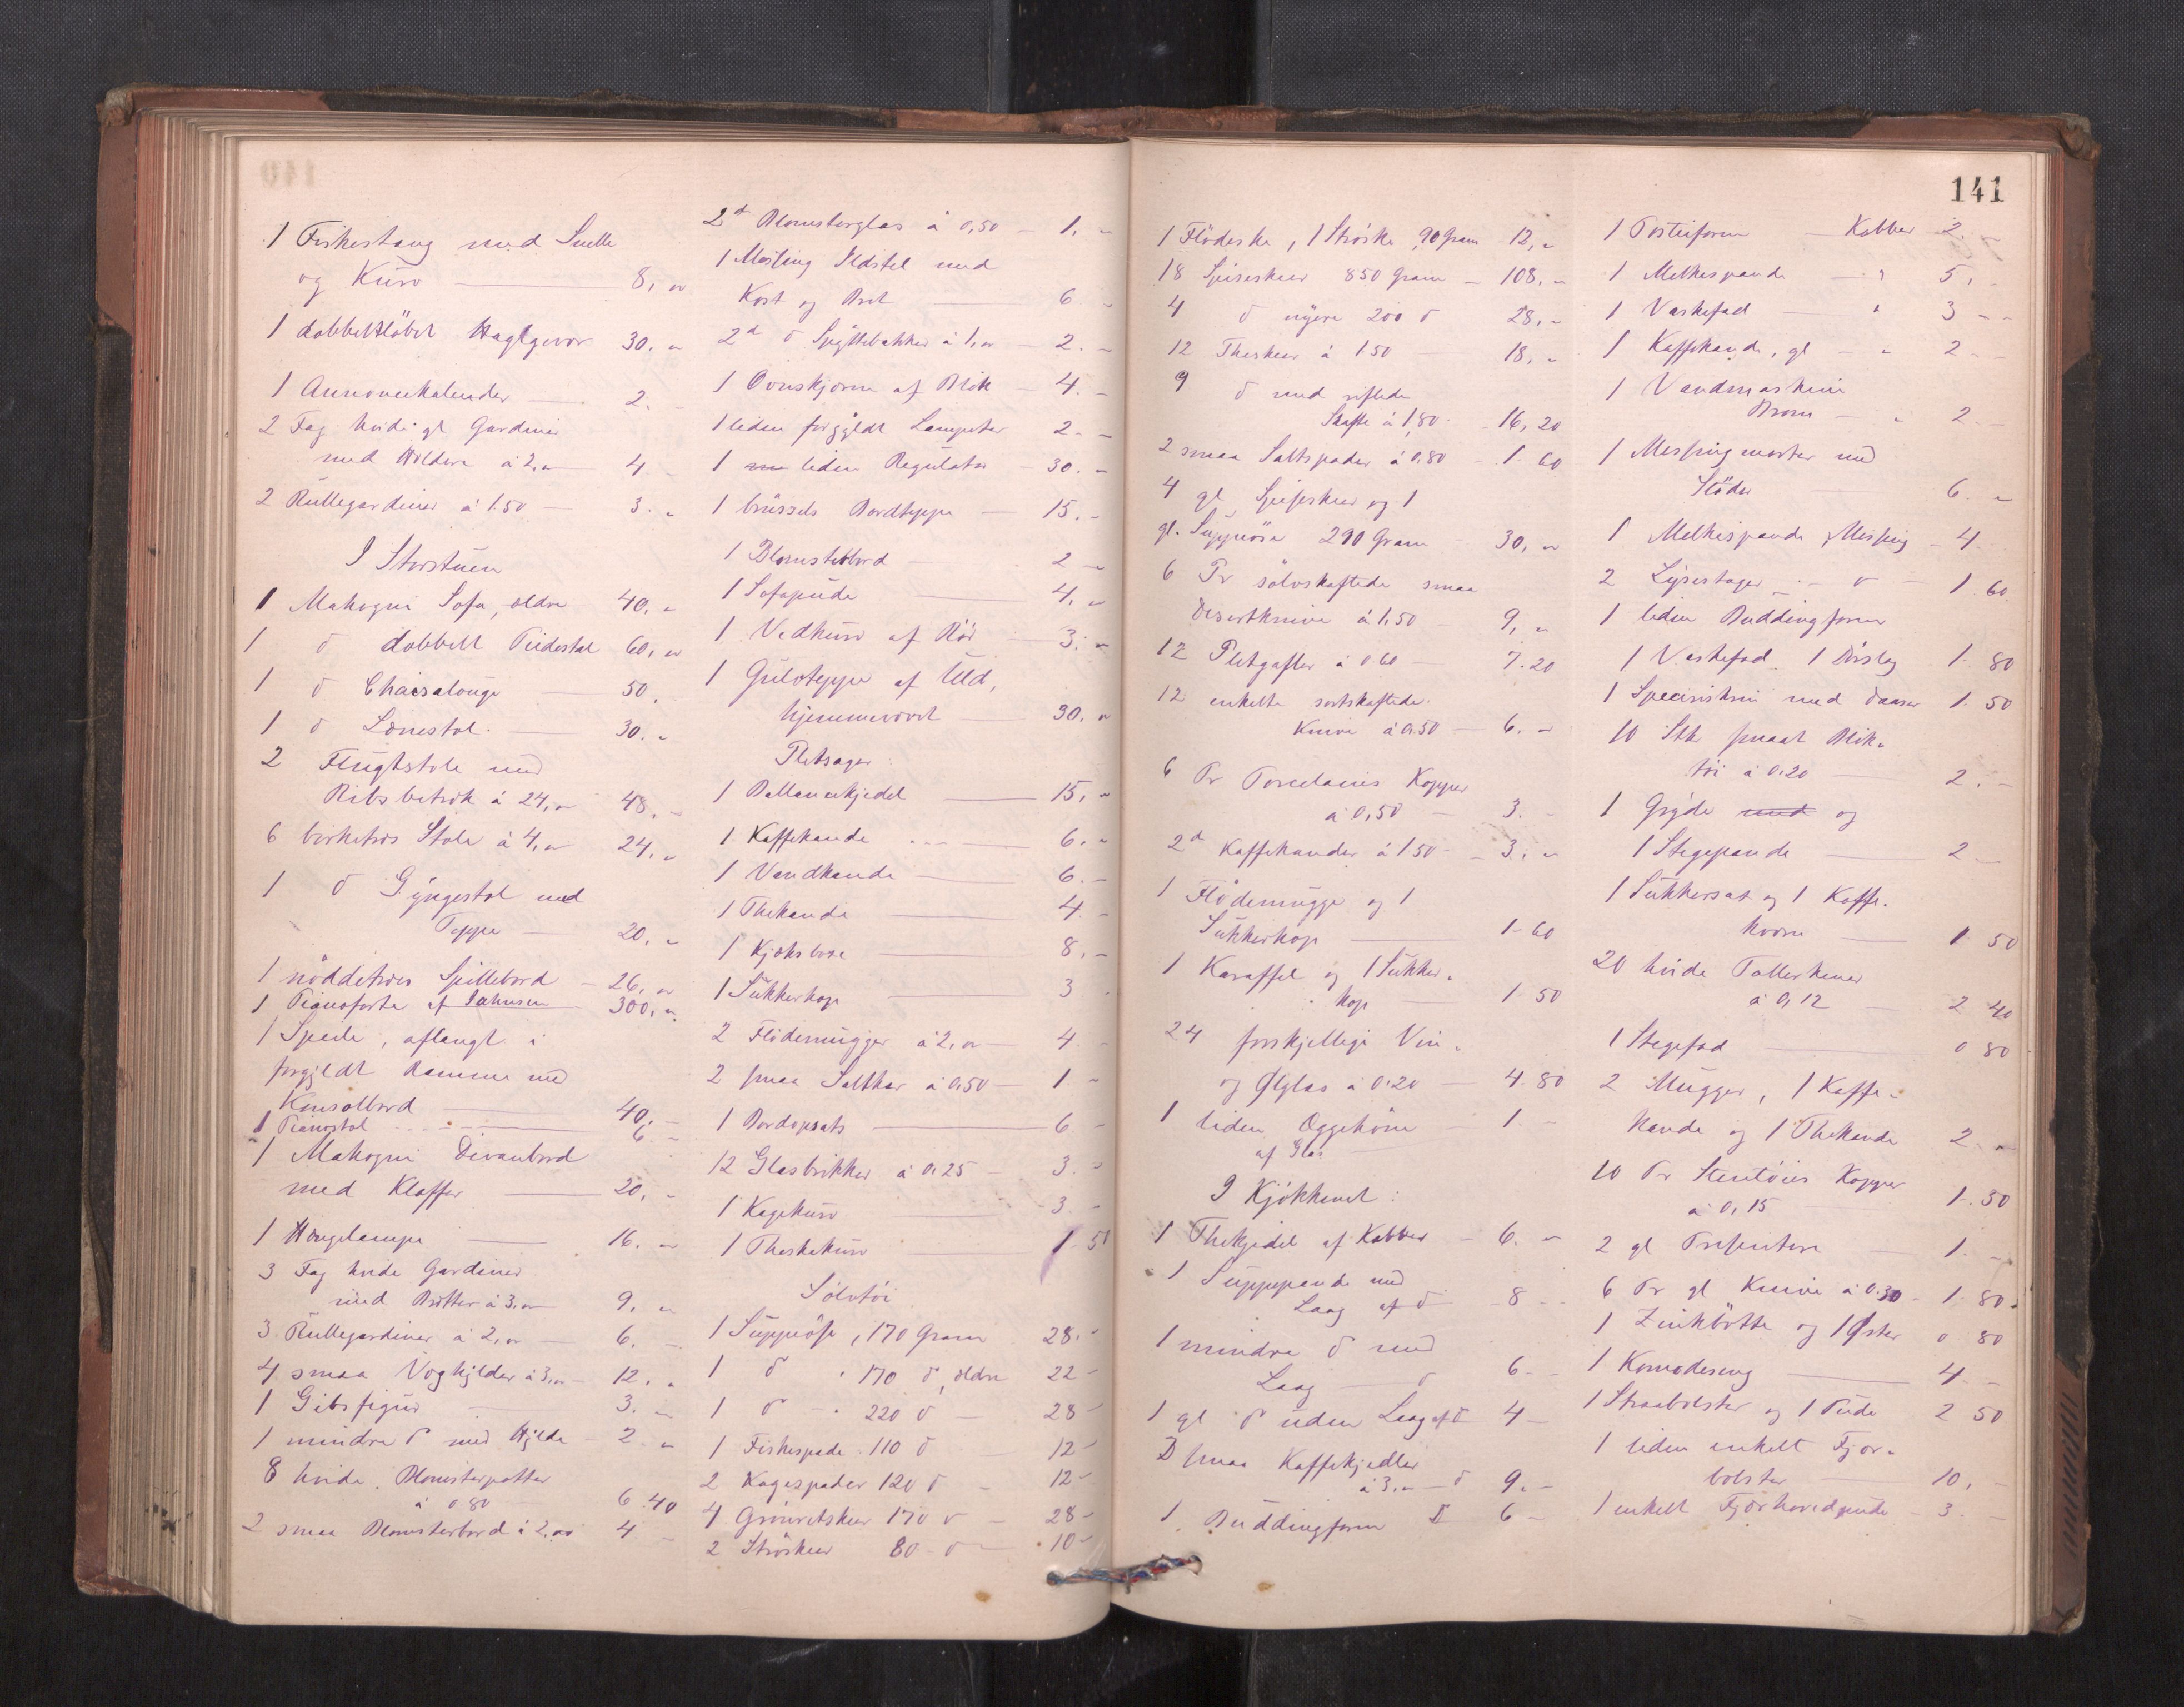 1 Fiskestang med Snelle
og Kurv — 8, "
1 dobbeltløbet Haglgevær 30. "
1 Annoncekalender — 2. "
2 Fag hvide gl Gardiner
med Holdere à 2, " 4 "
2 Rullegardiner à 1.50 — 3. "
I Storstuen
1 Mahogni Sofa, ældre 40. "
1 d dobbelt Pidestal 60, "
1 d Chaiselongue 50.
1 d Lænestol — 30. "
2 Flugtstole med
Ribs betræk à 24, " 48. "
6 birketræs Stole à 4, " 24. "
1 d Gyngestol med
Teppe — 20, "
1 nøddetræs Spillebord — 26. "
1 Pianoforte af 300, "
1 Speile, aflangt i
forgyldt Ramme med
Konsolbord — 40. "
1 Pianostol — 6 "
1 Mahogni Divanbord
med Klaffer — 20, "
1 Hængelampe — 16. "
3 Fag hvide Gardiner
med Bretter à 3. " 9. "
3 Rullegardiner à 2, " — 6. "
4 smaa Væghylder à 3, " — 12. "
1 Gibsfigur — 3. "
1 mindre d med Hylde — 2. "
8 hvide Blomsterpotter
à 0.80 6.40
2 smaa Blomsterbord à 2. " 4 "
2d Blomsterglas à 0,50 — 1, "
1 Messing Ildstel med
Kost og Bret — 6 "
2d d Spyttebakker à 1, " — 2. "
1 Ovnskjerm af Blik — 4. "
1 liden forgyldt Lampeter 2. "
1 liden Regulator — 30. "
1 brüssels Bordteppe — 15. "
1 Blomsterbord — 2 "
1 Sofapude — 4. "
1 Vedkurv af Rør — 3. "
1 Gulvteppe af Uld,
hjemmevævet — 30. "
Pletsager:
1 Ballancekjedel — 15, "
1 Kaffekande — 6. "
1 Vandkande — 6. "
1 Thekande — 4. "
1 Kjæksboxe — 8. "
1 Sukkerkop — 3.
2 Flødemugger à 2, " — 4 "
2 smaa Saltkar à 0,50 — 1 "
1 Bordopsats — 6 "
12 Glasbrikker à 0.25 — 3. "
1 Kagekurv — 3. "
1 Theskekurv — 1.50
Sølvtøi
1 Suppeøse, 170 Gram 28. "
1 d " 170 d, ældre 22 "
1 d " 220 d — 28 "
1 Fiskespade 110 d 12 "
2 Kagespader 120 d — 12 "
4 Grønretskeer 170 d — 28 "
2 Strøskeer 80 d — 10 "
141
1 Flødeske, 1 Strøske, 90 Gram 12, "
18 Spiseskeer 850 Gram — 108, "
4 d nyere 200 d 28, "
12 Theskeer à 1 50 18, "
9 d med riflede
Skafte à 1,80 — 16, 20
2 smaa Saltspader à 0,80 — 1. 60
4 gl. Spiseskeer og 1
gl. Suppeøse 290 Gram — 30, "
6 Pr sølvskaftede smaa
Desertknive à 1,50 — 9, "
12 Pletgafler à 0.60 — 7.20
12 enkelte sortskaftede
Knive à 0.50 — 6. "
6 Pr Porcelains Kopper
à 0,50 — 3. "
2d Kaffekander à 1 50 — 3, "
1 Flødemugge og 1
Sukkerkop — 1 60
1 Karaffel og 1 Sukker-
kop — 1 50
24 forskjellige Vin-
og Ølglas à 0.20 — 4. 80
1 liden Oggehöne — 1. "
af Glas
I Kjøkkenet:
1 Thekjedel af Kobber — 6. "
1 Suppepande med
Laag af d — 8 "
1 mindre d med
Laag — d 6 "
1 gl d uden Laag af d 4 —
3 smaa Kaffekjedler
à 3, " — d 9. "
1 Buddingform d 6 —
1 Posteiform — Kobber 2. "
1 Melkespande — " 5. "
1 Vaskefad — " 3 "
1 Kaffekande, gl — " 2 "
1 Vandmaskine
— " 2 "
1 Messing morter med
Støder 6. "
1 Melkespande, Messing — 4
2 Lysestager — d — 1. 60
1 liden Buddingform
1 Vaskefad, 1 Dørslag 1. 80
1 Speceriskrin med Daaser 1. 50
10 Stk smaat Blik-
tøi à 0.20 — 2. "
1 Gryde med og
1 Stegepande — 2 "
1 Sukkersax og 1 Kaffe-
kværn — 1. 50
20 hvide Tallerkener
à 0,12 — 2 40
1 Stegefad — 0 80
2 Mugger, 1 Kaffe-
kande og 1 Thekande 2. "
10 Pr Stentøies Kopper
à 0,15 1. 50
2 gl Presentere — 1. "
6 Pr gl Knive à 0.30 — 1. 80
1 Zinkbøtte og 1 Øster 0 80
1 Komodeseng — 4 "
1 Straabolster og 1 Pude 2 50
1 liden enkelt Fjær-
bolster — 10, "
1 enkelt Fjærhovedpude — 3. "